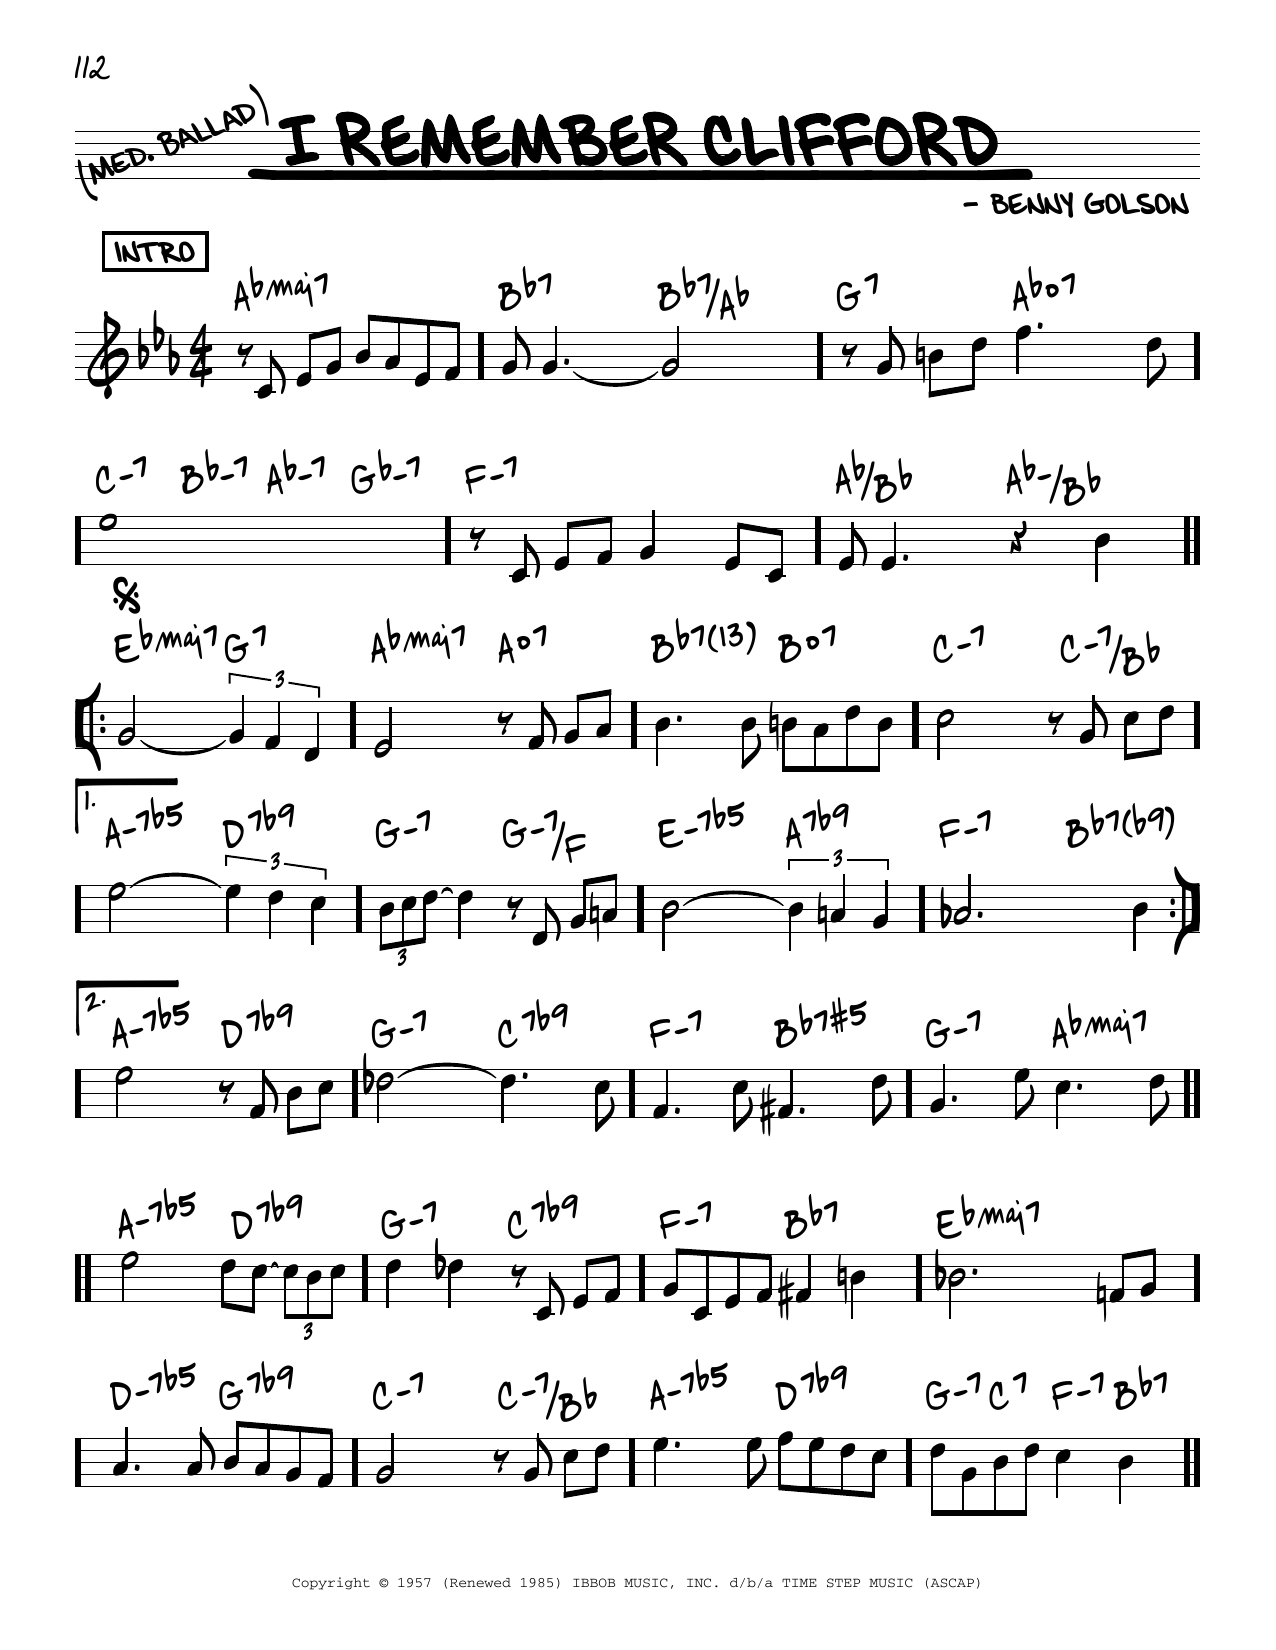 112
(MED. BALLAD)
I REMEMBER CLIFFORD
- BENNY GOLSON
INTRO
A♭maj7 B♭7 B♭7/A♭ G7 A♭o7
4/4
C-7 B♭-7 A♭-7 G♭-7 F-7 A♭/B♭ A♭-/B♭
E♭maj7 G7 A♭maj7 Ao7 B♭7(13) Bo7 C-7 C-7/B♭
3
1.
A-7♭5 D7♭9 G-7 G-7/F E-7♭5 A7♭9 F-7 B♭7(♭9)
3 3
3
2.
A-7♭5 D7♭9 G-7 C7♭9 F-7 B♭7#5 G-7 A♭maj7
A-7♭5 D7♭9 G-7 C7♭9 F-7 B♭7 E♭maj7
3
D-7♭5 G7♭9 C-7 C-7/B♭ A-7♭5 D7♭9 G-7 C7 F-7 B♭7
Copyright © 1957 (Renewed 1985) IBBOB MUSIC, INC. d/b/a TIME STEP MUSIC (ASCAP)